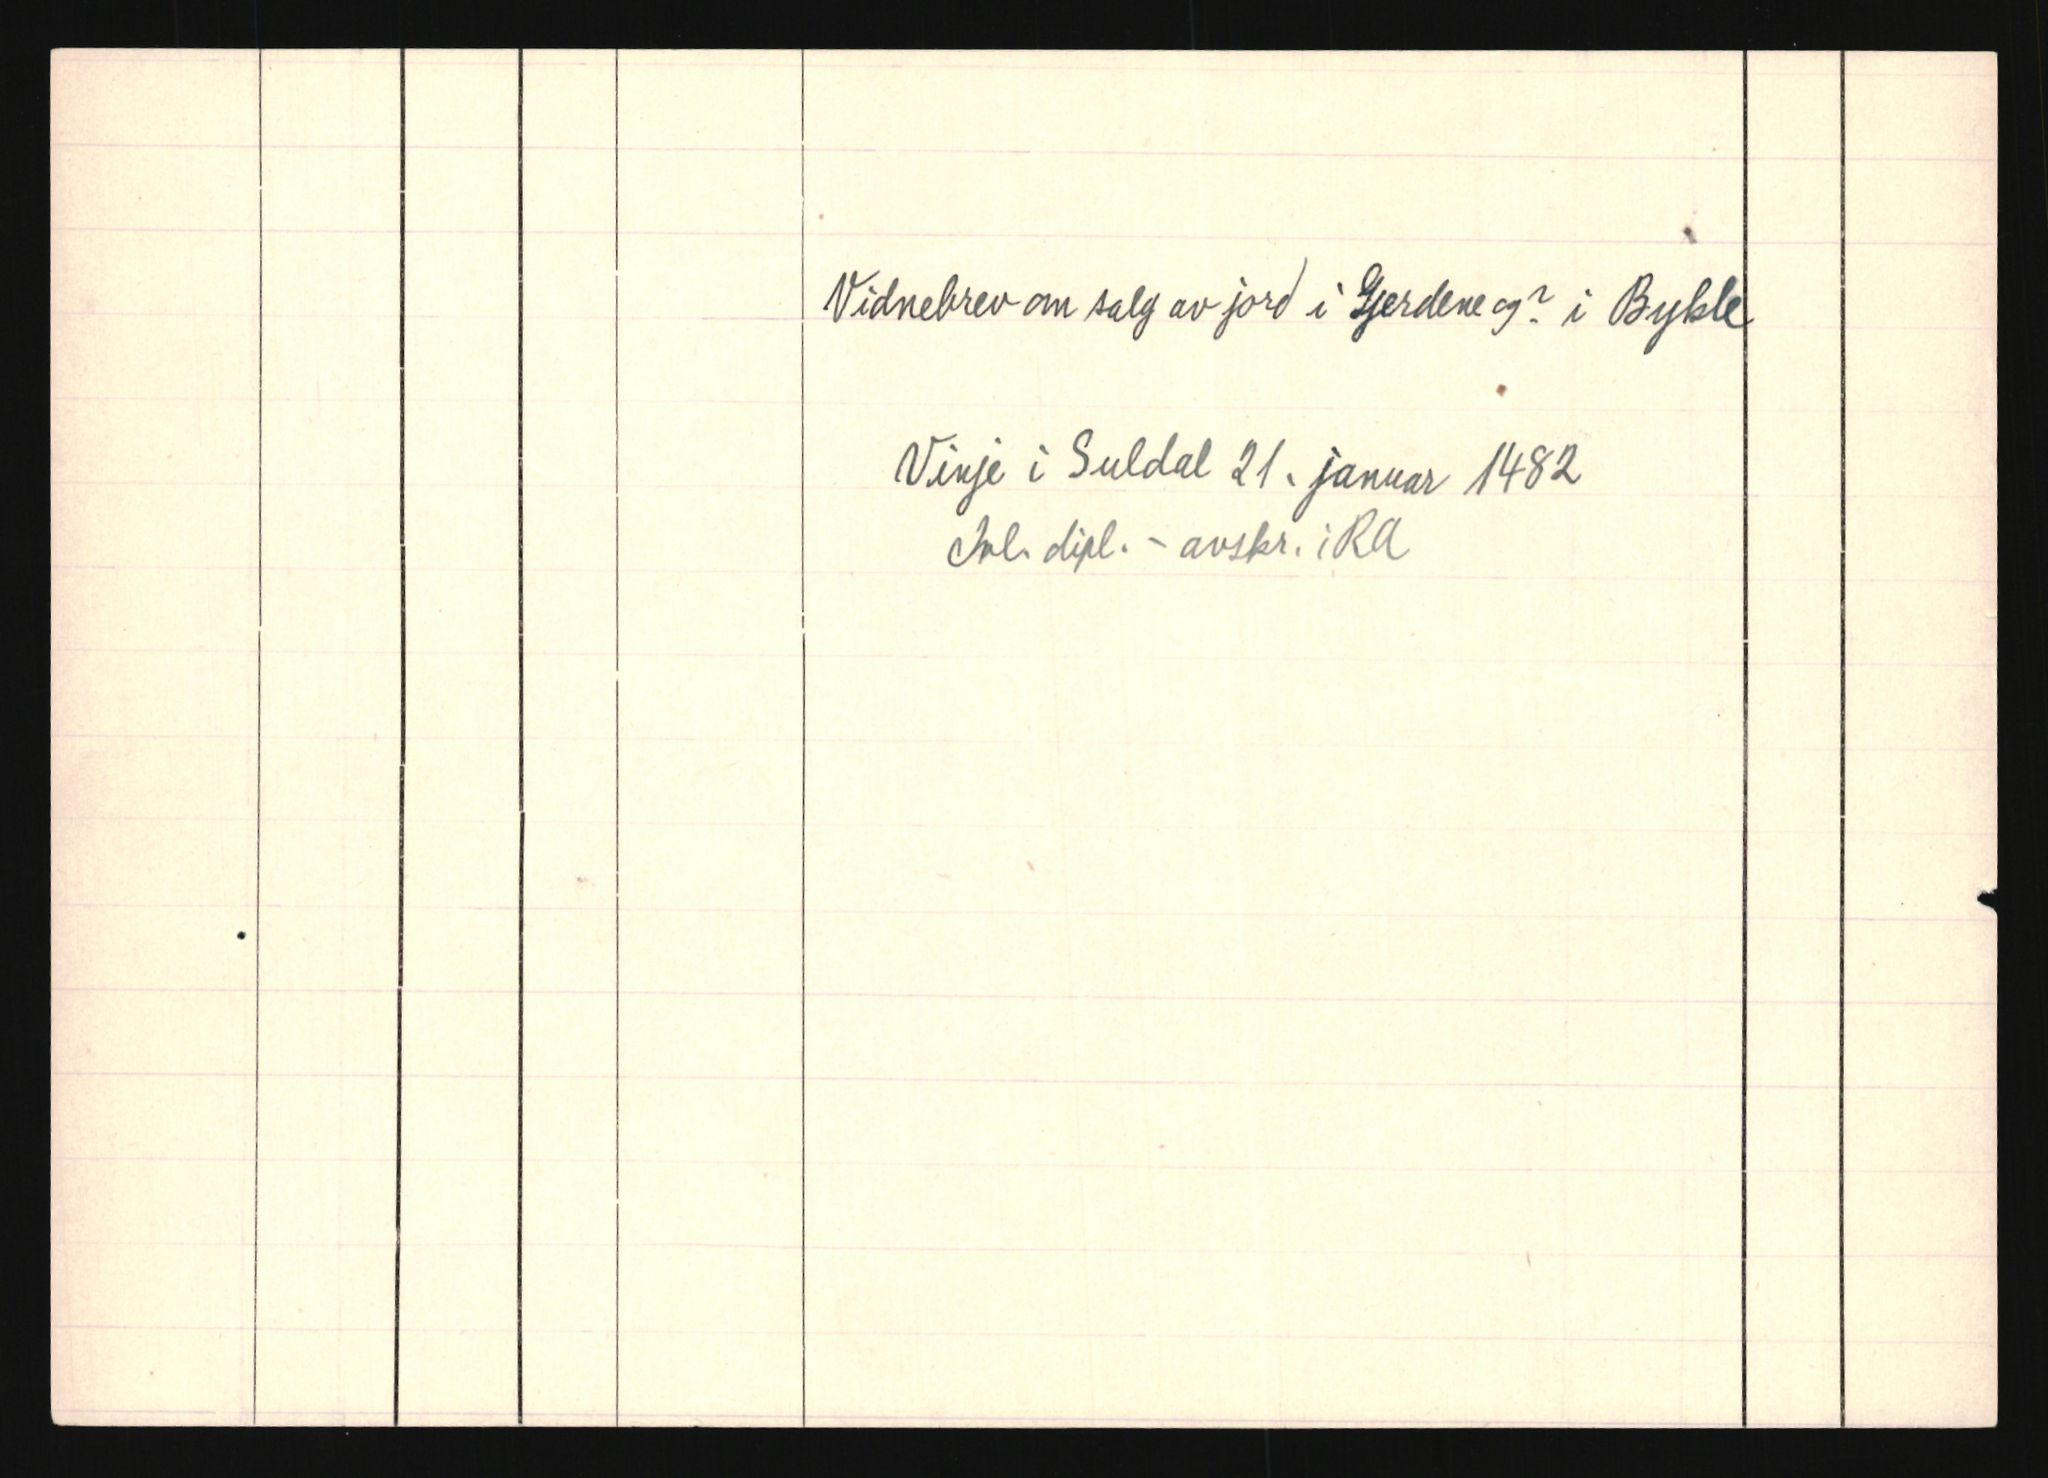 Vidnebrev om salg av jord i Gjerdene og? i Bykle
Vinje i Suldal 21. januar 1482
dipl. - avskr. i RA